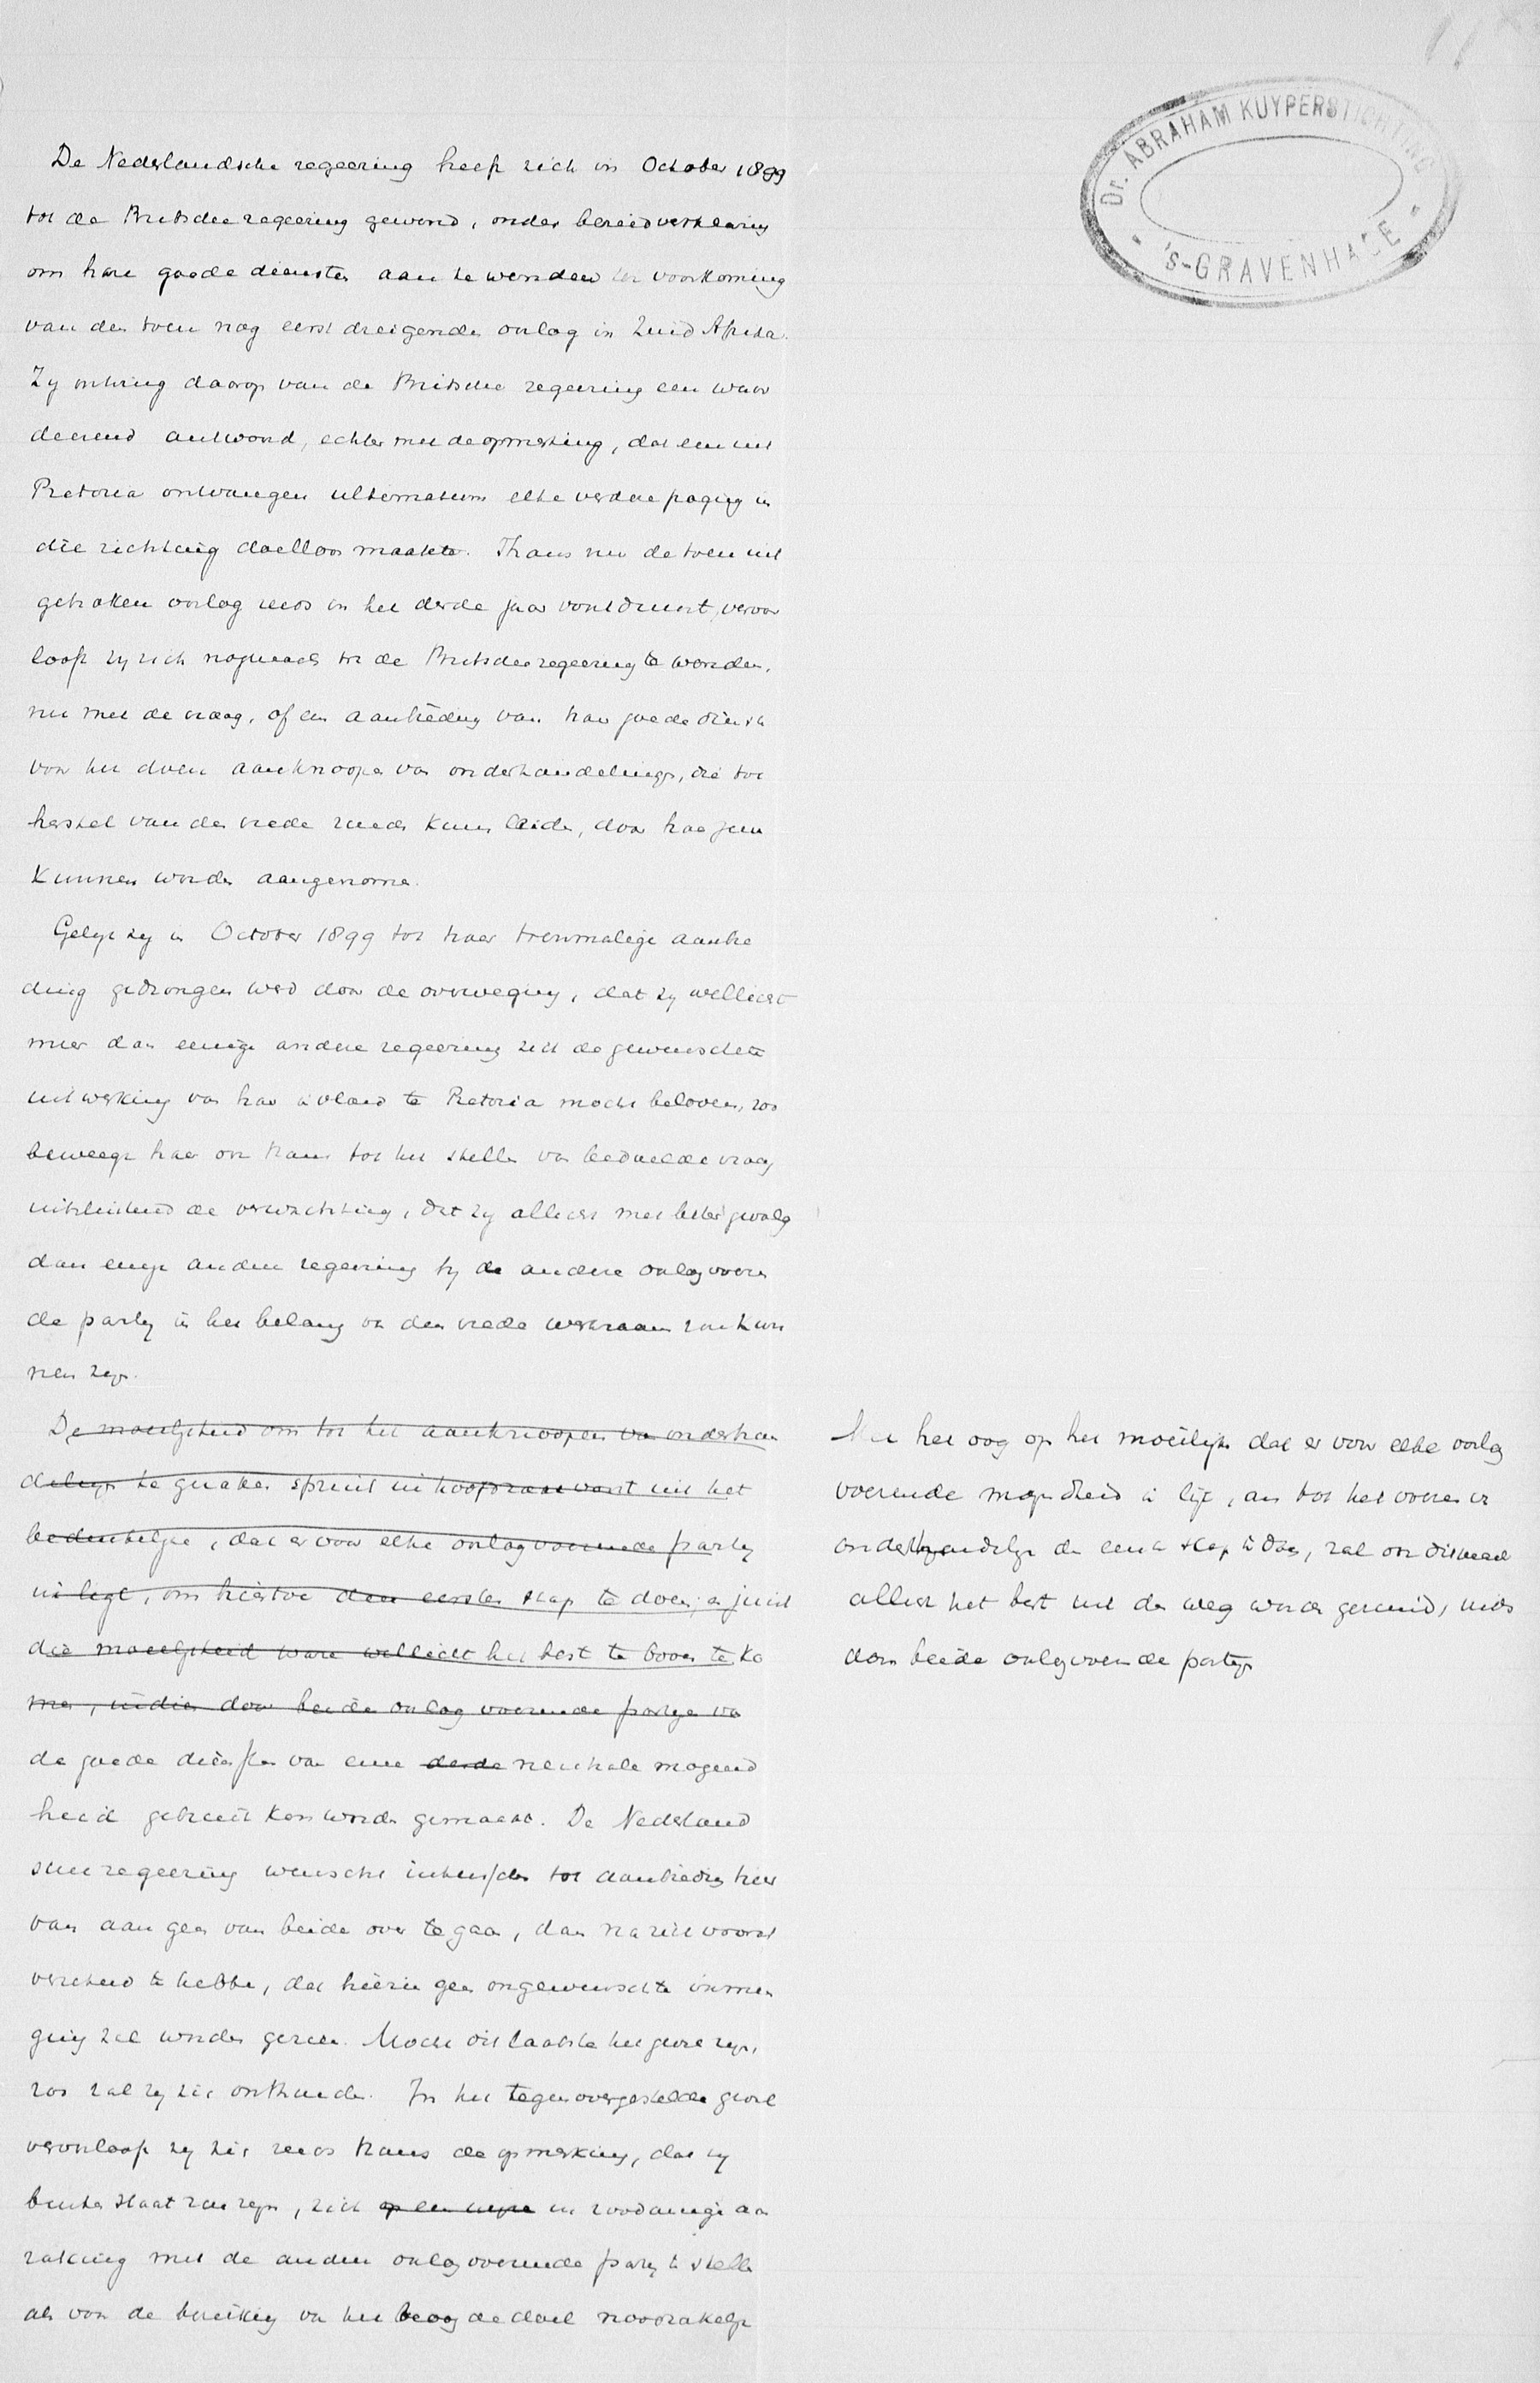 Dr. ABRAHAM KUYPERSTICHTING
- 's-GRAVENHAGE -
De Nederlandsche regeering heeft zich in October 1899
tot de Britsche regeering gewend, onder bereidverklaring
om hare goede diensten aan te wenden ter voorkoming
van den toen nog eerst dreigenden oorlog in Zuid Afrika.
Zy ontving daarop van de Britsche regeering een waar
deerend antwoord, echter met de opmerking, dat een uit
Pretoria ontvangen ultimatum elke verdere poging in
die richting doelloos maakte. Thans nu de toen uit
gebroken oorlog reeds in het derde jaar voortduurt, veroor
looft zy zich nogmaals tot de Britsche regeering te wenden,
nu met de vraag, of een aanbieding van haar goede diensten
voor het doen aanknoopen van onderhandelingen, die tot
herstel van den vrede zouden kunnen leiden, door haar zou
kunnen worden aangenomen.
Gelijk zy in October 1899 tot haar toenmalige aanbie
ding gedrongen werd door de overweging, dat zy wellicht
meer dan eenige andere regeering zich de gewenschte
uitwerking van haar invloed te Pretoria mocht beloven, zoo
beweegt haar ook thans tot het stellen van bedoelde vraag
uitsluitend de verwachting, dat zy allicht met beter gevolg
dan eenige andere regeering by de andere oorlogvoeren
de party in het belang van den vrede werkzaam zou kun
nen zyn.
De moeilykheid om tot het aanknoopen van onderhan
delingen te geraken spruit in hoofdzaak voort uit het
bedenkelyke, dat er voor elke oorlogvoerende party
in legt, om hiertoe den eersten stap te doen, en juist
die moeilykheid ware wellicht het best te boven te ko
men, indien door beide oorlog voerende partyen van
de goede diensten van eene derde neutrale mogend
heid gebruik kon worden gemaakt. De Nederland
sche regeering wenscht intusschen tot aanbieding hier
van aan geen van beide over te gaan, dan na zich vooraf
verzekerd te hebben, dat hierin geen ongewenschte inmen
ging zal worden gezien. Mocht dit laatste het geval zyn,
zoo zal zy zich onthouden. In het tegenovergestelde geval
veroorlooft zy zich reeds thans de opmerking, dat zy
buiten staat zou zyn, zich op een wyze in zoodanige aan
raking met de andere oorlogvoerende party te stellen
als voor de bereiking van het beoogde doel noodzakelyk
Met het oog op het moeilyke dat er voor elke oorlog
voerende mogendheid in ligt, om tot het voeren van
onderhandelingen den eersten stap te doen, zal dit bezwaar
allicht het best uit den weg worden geruimd, mits
door beide oorlogvoerende partyen